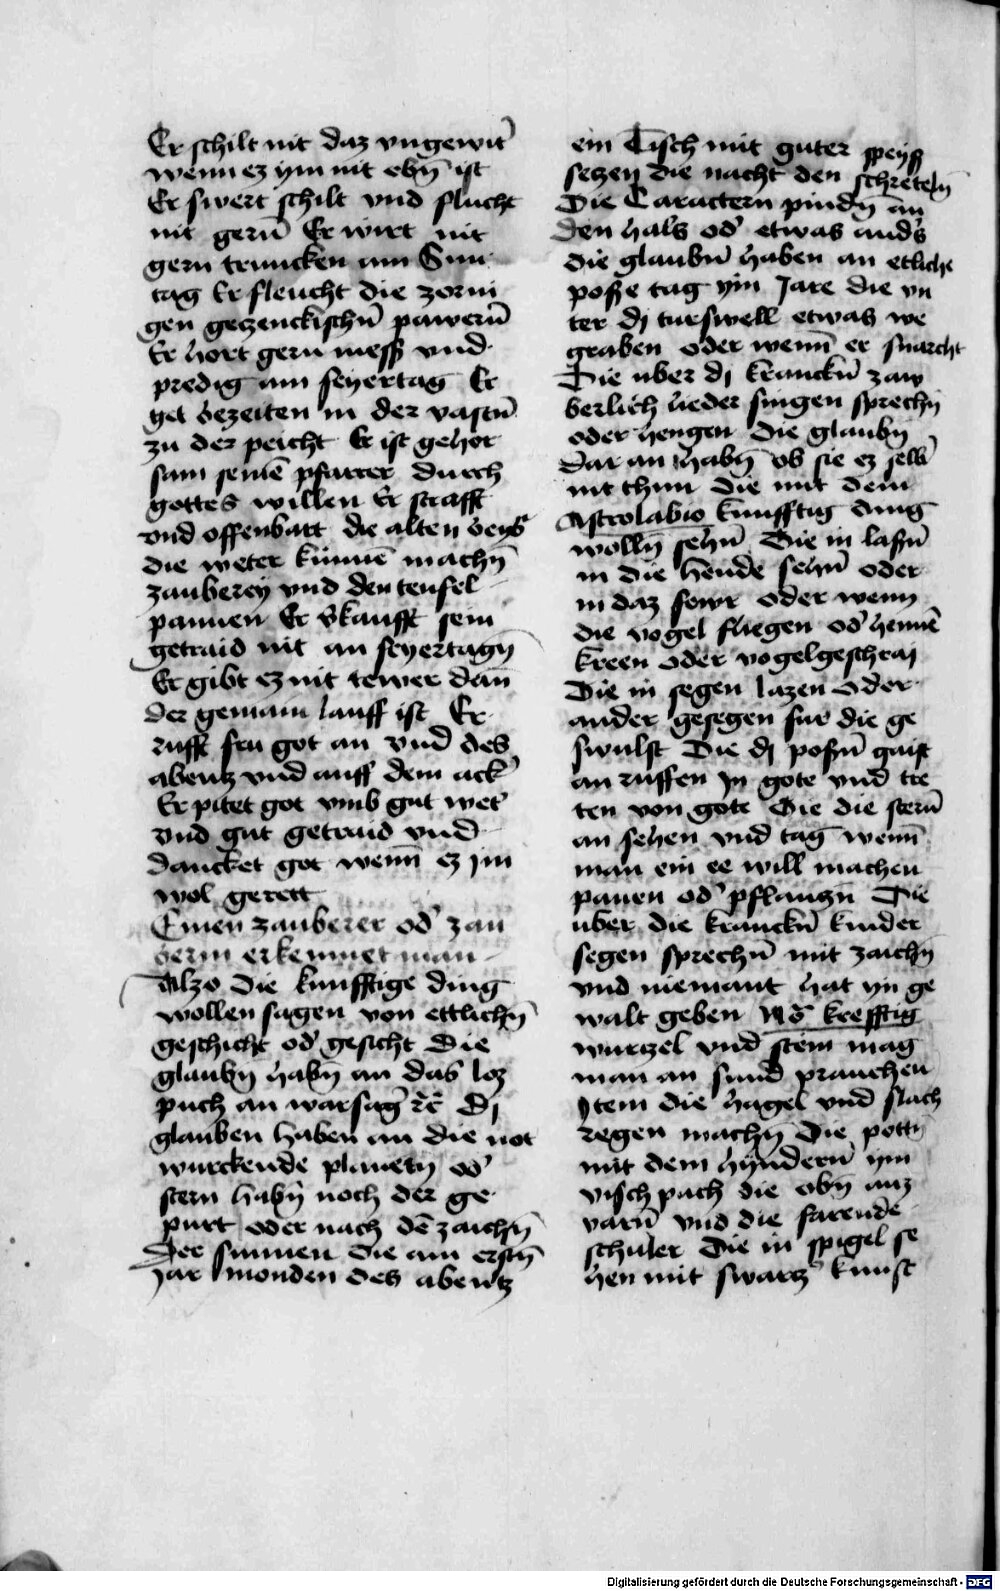 Er schilt nit daz vngewit̄
wenn ez ym nit ebn̄ ist
Er swert schilt vnd flucht
nit gern̄ Er wirt nit
gern truncken am Sun
tag Er fleucht die zorni
gen gezenckischn̄ pawern̄
Er hort gern mess vnd
predig am feyertag Er
get bezeiten in der vastn̄
zu der peicht Er ist gehor
sam seinē pfarrer durch
gottes willen Er strafft
vnd offenbart die alten
die weter kunnē machn̄
zauberey vnd den teufel
pannen Er v̄kaufft sein
getraid nit an feyertagn̄
Er gibt ez nit tewer dan̄
der gemain lauff ist Er
rufft fru got an vnd des
abentz vnd auff dem ack̄
Er pitet got vmb gut wet̄
vnd gut getraid vnd
dancket got wenn̄ ez jm
wol gerett
Einen zauberer od̄ zau
berin erkennet man
Alzo Die kunfftige ding
wollen sagen von ettlichn̄
geschicht od̄ gesicht Die
glaubn̄ habn̄ an das loz
puch an warsaḡ rc̄ Dj
glauben haben an die not
wurckende planetn̄ od̄
stern habn̄ noch der ge
purt oder nach dē zaichn̄
Der sunnen die am erstn̄
Jar monden des abentz
ein Tisch mit guter speyß
setzen die nacht den schreteln̄
Die Caractern pindn̄ an
den hals od̄ etwas and̄s
die glaubn̄ haben an etliche
poße tag ym Jare die vn
ter dj turswell etwas we
graben oder wenn̄ er snarcht
Die uber dj kranckn̄ zaw
berlich lieder singen sprechn̄
oder hengen die glaubn̄
dar an habn̄ ob sie ez selb̄
nit thun die mit dem
Astrolabio kunfftig ding
wolln̄ sehn̄ Die in lasn̄
in die hende sehn̄ oder
in daz fewr oder wenn
die vogel fliegen od̄ hennē
kreen oder vogelgeschraj
Die in segen lazen oder
ander gesegen fur die ge
swulst Die dj posn̄ gaist
an ruffen jn gote vnd tre
ten von gote Die die stern̄
an sehen vnd tag wenn̄
man ein ee will machen
pauen od̄ pflantzn̄ Die
uber die kranckn̄ kinder
segen sprechn̄ mit zaichn̄
vnd niemant hat yn ge
walt geben krefftig
wurtzel vnd stein mag
man an sund prauchen
Jtem die hagel vnd slach
regen machn̄ Die
mit dem hyndern̄ ym
vischpach die obn̄ auz
varn̄ vnd die farende
schuler Die in spigel se
hen mit swartz̄ kunst
Digitalisierung gefördert durch die Deutsche Forschungsgemeinschaft - DFG